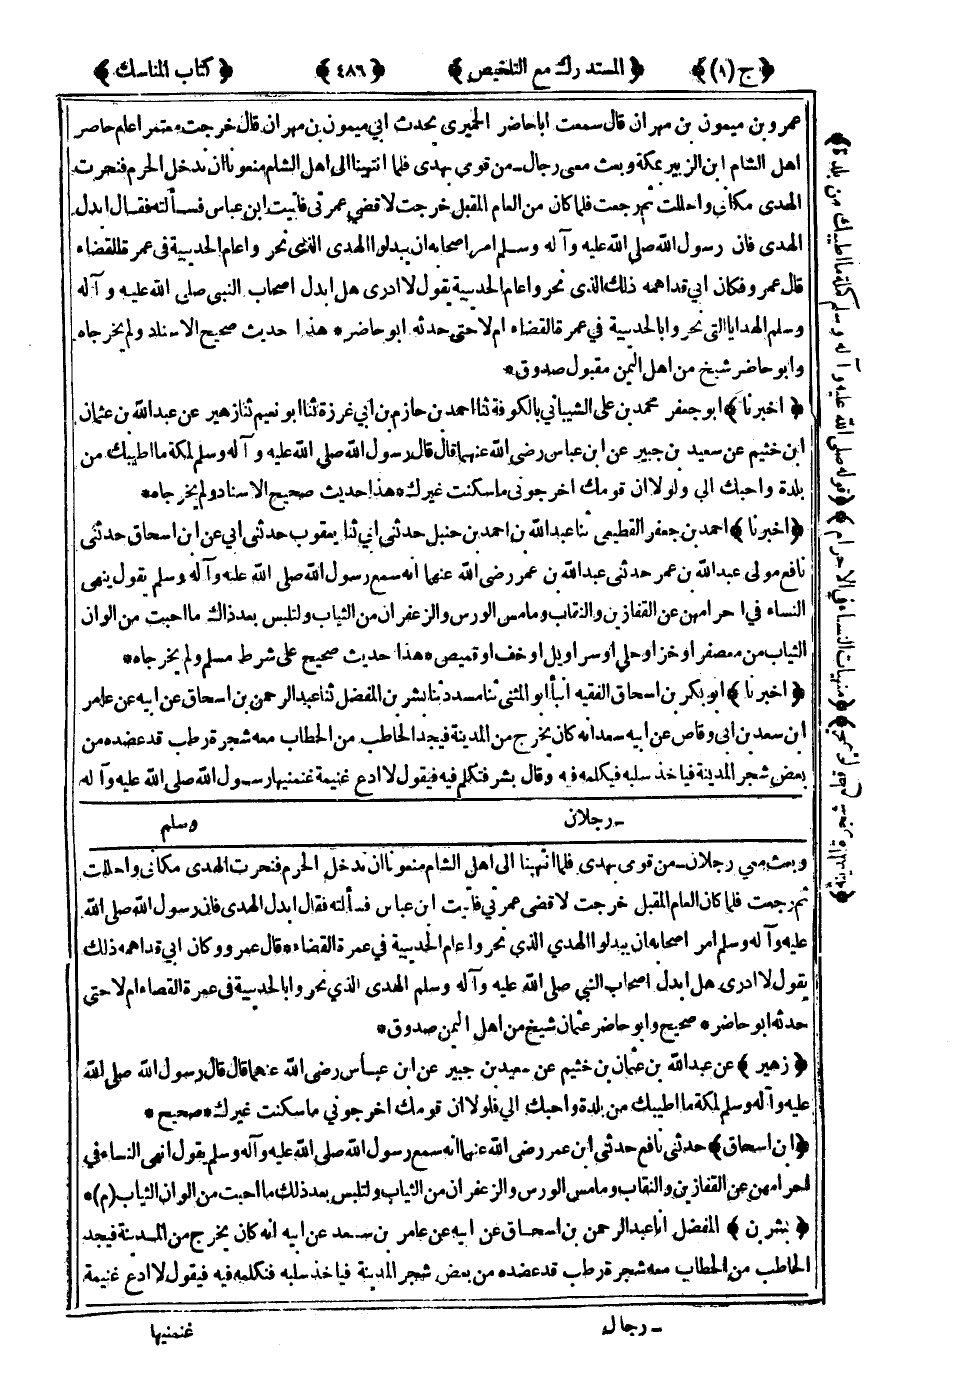 ﴿ ج (١) ﴾ ﴿ المستدرك مع التلخيص ﴾ ﴿ ٤٨٦ ﴾ ﴿ كتاب المناسك ﴾
عمرو بن ميمون بن مهران قال سمعت اباحاضر الحميرى يحدث ابي ميمون بن مهران قال خرجت معتمرا عام حاصر
اهل الشام ابن الزبير بمكة وبعث معى رجال ـ من قومى بهدى فلما انتهينا الى اهل الشام منعونا ان ندخل الحرم فنحرت
الهدى مكانى واحللت ثم رجعت فلما كان من العام المقبل خرجت لاقضي عمرتى فأتيت ابن عباس فسألته فقال ابدل
الهدى فان رسول الله صلى الله عليه وآله وسلم امر اصحابه ان يبدلوا الهدى الذى نحروا عام الحديبية فى عمرة القضاء
قال عمرو فكان ابي قد اهمه ذلك الذى نحروا عام الحديبية يقول لا ادرى هل ابدل اصحاب النبي صلى الله عليه وآله
وسلم الهدايا التى نحروا بالحديبية في عمرة القضاء ام لا حتى حدثه ابو حاضر * هذا حديث صحيح الاسناد ولم يخرجاه
وابو حاضر شيخ من اهل اليمن مقبول صدوق *
﴿ اخبرنا ﴾ ابو جعفر محمد بن على الشيبانى بالكوفة ثنا احمد بن حازم بن ابي غرزة ثنا ابو نعيم ثنا زهير عن عبد الله بن عثمان
ابن خثيم عن سعيد بن جبير عن ابن عباس رضى الله عنهما قال قال رسول الله صلى الله عليه وآله وسلم لمكة ما اطيبك من
بلدة واحبك الي ولولا ان قومك اخرجونى ما سكنت غيرك * هذا حديث صحيح الاسناد ولم يخرجاه *
﴿ اخبرنا ﴾ احمد بن جعفر القطيعى ثنا عبد الله بن احمد بن حنبل حدثنى ابي ثنا يعقوب حدثنى ابي عن ابن اسحاق حدثنى
نافع مولى عبد الله بن عمر حدثنى عبد الله بن عمر رضى الله عنهما انه سمع رسول الله صلى الله عليه وآله وسلم يقول ينهى
النساء في احرامهن عن القفازين والنقاب وما مس الورس والزعفران من الثياب ولتلبس بعد ذاك ما احبت من الوان
الثياب من معصفر او خز او حلي او سراويل او خف او قميص * هذا حديث صحيح على شرط مسلم ولم يخرجاه *
﴿ اخبرنا ﴾ ابو بكر بن اسحاق الفقيه انبأ ابو المثنى ثنا مسدد ثنا بشر بن المفضل ثنا عبد الرحمن بن اسحاق عن ابيه عن عامر
ابن سعد بن ابي وقاص عن ابيه سعد انه كان يخرج من المدينة فيجد الحاطب من الحطاب معه شجرة رطب قد عضده من
بعض شجر المدينة فيأخذ سلبه فيكلمه فيه وقال بشر فتكلم فيه فيقول لا ادع غنيمة غنمنيها رسول الله صلى الله عليه وآله
ـ رجلان وسلم
وبعث معي رجلان ـ من قومى بهدى فلما انتهينا الى اهل الشام منعونا ان ندخل الحرم فنحرت الهدى مكانى واحللت
ثم رجعت فلما كان العام المقبل خرجت لاقضى عمرتي فأتيت ابن عباس فسألته فقال ابدل الهدى فان رسول الله صلى الله
عليه وآله وسلم امر اصحابه ان يبدلوا الهدي الذي نحروا عام الحديبية في عمرة القضاء * قال عمرو وكان ابي قد اهمه ذلك
يقول لا ادرى هل ابدل اصحاب النبي صلى الله عليه وآله وسلم الهدى الذي نحروا بالحديبية فى عمرة القضاء ام لا حتى
حدثه ابو حاضر * صحيح وابو حاضر عثمان شيخ من اهل اليمن صدوق *
﴿ زهير ﴾ عن عبد الله بن عثمان بن خثيم عن سعيد بن جبير عن ابن عباس رضى الله عنهما قال قال رسول الله صلى الله
عليه وآله وسلم لمكة ما اطيبك من بلدة واحبك الي فلولا ان قومك اخرجوني ما سكنت غيرك * صحيح *
﴿ ابن اسحاق ﴾ حدثنى نافع حدثنى ابن عمر رضى الله عنهما انه سمع رسول الله صلى الله عليه وآله وسلم يقول انهى النساء في
احرامهن عن القفازين والنقاب وما مس الورس والزعفران من الثياب ولتلبس بعد ذلك ما احبت من الوان الثياب (م) *
﴿ بشر بن ﴾ المفضل انا عبد الرحمن بن اسحاق عن ابيه عن عامر بن سعد عن ابيه انه كان يخرج من المدينة فيجد
الحاطب من الحطاب معه شجرة رطب قد عضده من بعض شجر المدينة فيأخذ سلبه فتكلمه فيه فيقول لا ادع غنيمة
ـ رجال غنمنيها
﴿ قوله صلى الله عليه وآله وسلم لمكة ما اطيبك من بلدة ﴾ ﴿ منهيات النساء في الاحرام ﴾